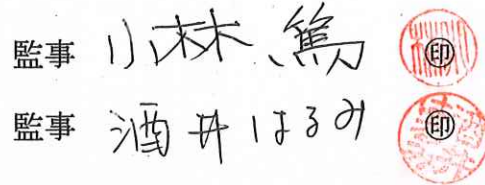 監事 小林 篤 ㊞
監事 酒井はるみ ㊞